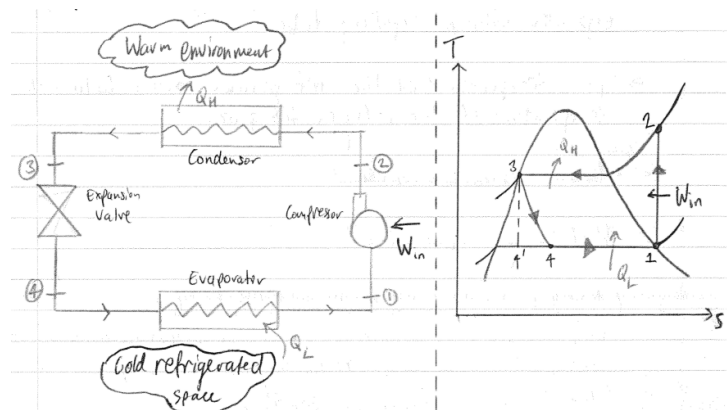 Warm environment
Q_H
Condensor
③
②
Expansion
valve
Compressor
W_in
Evaporator
④
①
Q_L
Cold refrigerated
space
T
2
3
Q_H
W_in
4'
4
1
Q_L
s